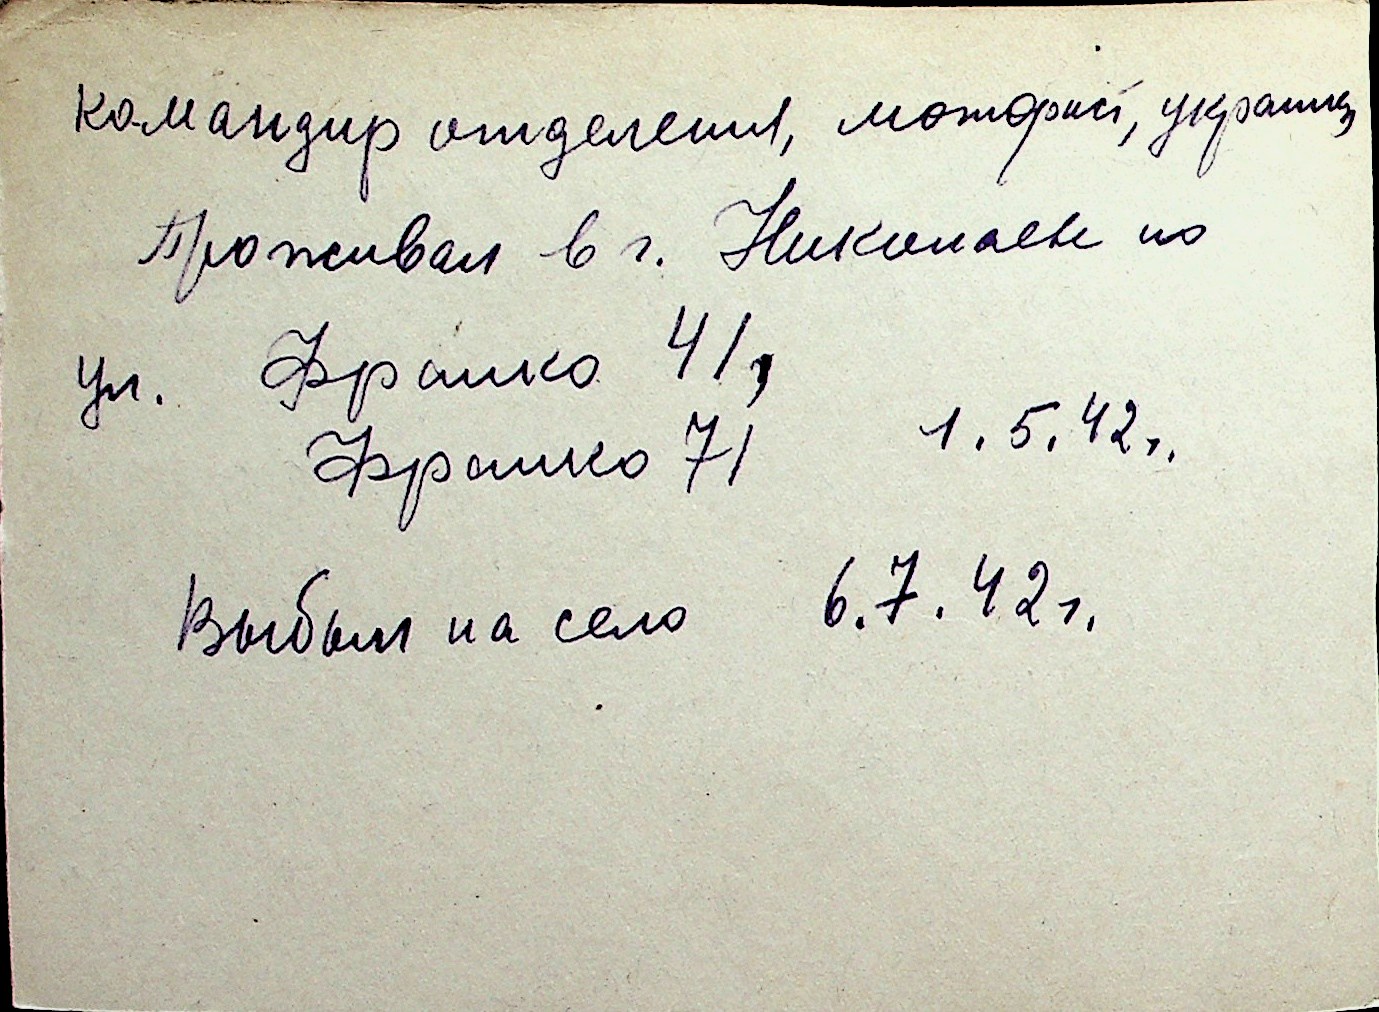 командир отделения, моторист, украинец
Проживал в г. Николаеве по
ул. Франко 41,
Франко 71 1.5.42г.
Выбыл на село 6.7.42г.